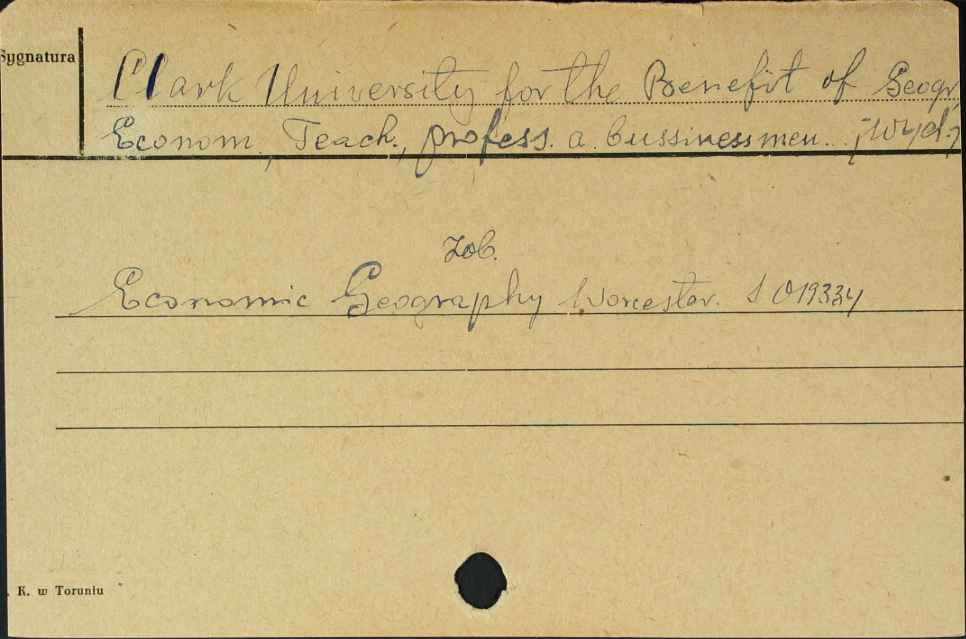 Sygnatura
Clark University for the Benefit of Geogr,
Econom, Teach., profess. a. bussinessmen... [Wyd.]
Zob.
Economic Geography Worcester.
K. w Toruniu